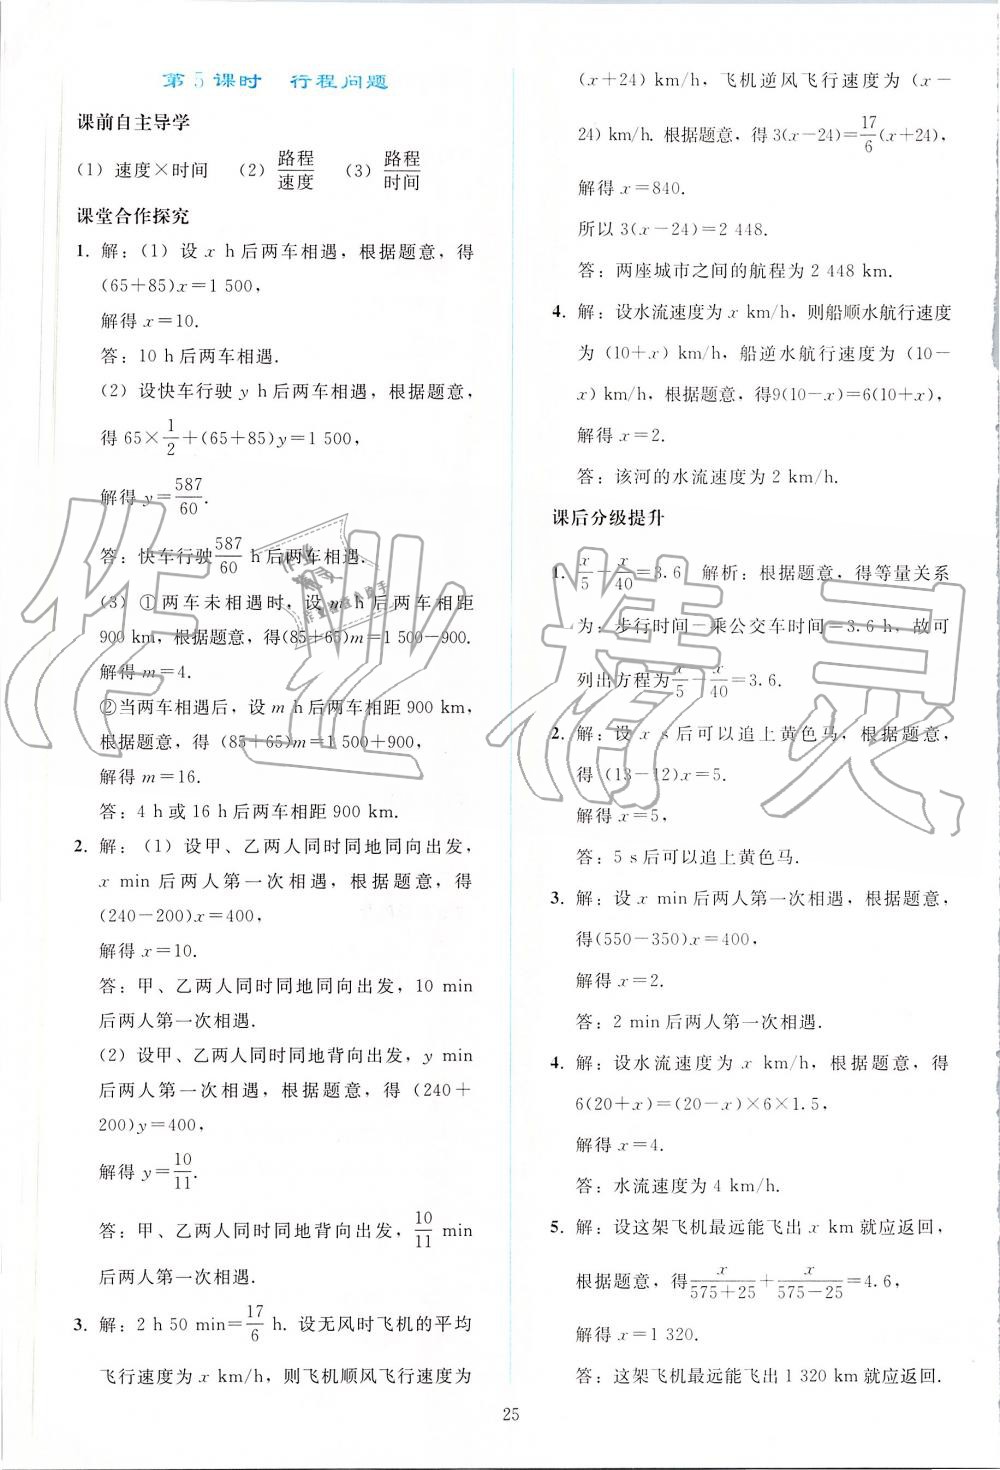 第5课时 行程问题
课前自主导学
(1) 速度×时间 (2) 路程/速度 (3) 路程/时间
课堂合作探究
1. 解:(1) 设 x h后两车相遇,根据题意,得
(65+85)x=1 500,
解得 x=10.
答:10 h后两车相遇.
(2) 设快车行驶 y h后两车相遇,根据题意,
得 65×1/2+(65+85)y=1 500,
解得 y=587/60.
答:快车行驶587/60 h后两车相遇.
(3) ①两车未相遇时,设 m h后两车相距
900 km,根据题意,得(85+65)m=1 500-900.
解得 m=4.
②当两车相遇后,设 m h后两车相距 900 km,
根据题意,得 (85+65)m=1 500+900,
解得 m=16.
答:4 h或16 h后两车相距900 km.
2. 解:(1) 设甲、乙两人同时同地同向出发,
x min后两人第一次相遇,根据题意,得
(240-200)x=400,
解得 x=10.
答:甲、乙两人同时同地同向出发,10 min
后两人第一次相遇.
(2) 设甲、乙两人同时同地背向出发,y min
后两人第一次相遇,根据题意,得 (240+
200)y=400,
解得 y=10/11.
答:甲、乙两人同时同地背向出发,10/11 min
后两人第一次相遇.
3. 解:2 h 50 min=17/6 h. 设无风时飞机的平均
飞行速度为 x km/h,则飞机顺风飞行速度为
(x+24) km/h,飞机逆风飞行速度为 (x-
24) km/h. 根据题意,得 3(x-24)=17/6(x+24),
解得 x=840.
所以 3(x-24)=2 448.
答:两座城市之间的航程为 2 448 km.
4. 解:设水流速度为 x km/h,则船顺水航行速度
为 (10+x) km/h,船逆水航行速度为 (10-
x) km/h,根据题意,得9(10-x)=6(10+x),
解得 x=2.
答:该河的水流速度为 2 km/h.
课后分级提升
1. x/5-x/40=3.6 解析:根据题意,得等量关系
为:步行时间-乘公交车时间=3.6 h,故可
列出方程为x/5-x/40=3.6.
2. 解:设 x s后可以追上黄色马,根据题意,
得 (13-12)x=5.
解得 x=5,
答:5 s后可以追上黄色马.
3. 解:设 x min后两人第一次相遇,根据题意,
得(550-350)x=400,
解得 x=2.
答:2 min后两人第一次相遇.
4. 解:设水流速度为 x km/h,根据题意,得
6(20+x)=(20-x)×6×1.5,
解得 x=4.
答:水流速度为 4 km/h.
5. 解:设这架飞机最远能飞出 x km就应返回,
根据题意,得x/(575+25)+x/(575-25)=4.6,
解得 x=1 320.
答:这架飞机最远能飞出 1 320 km就应返回.
25
作业精灵